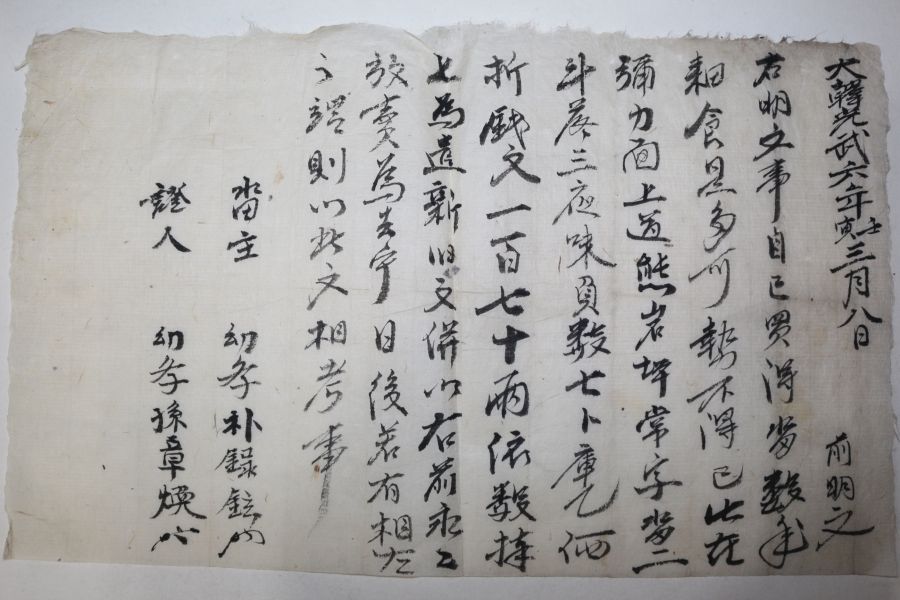 大韓光武六年壬寅三月八日 前明文
右明文事自己買得畓數年
耕食是多可勢不得已此在
彌力面上道熊岩坪常字畓二
斗落三夜味負數七卜庫乙価
折戔文一百七十兩依數捧
上為遣新旧文併以右前永々
放賣為去乎日後若有相左
之談則以此文相考事
畓主 幼學朴錄鉉
證人 幼學孫章煥